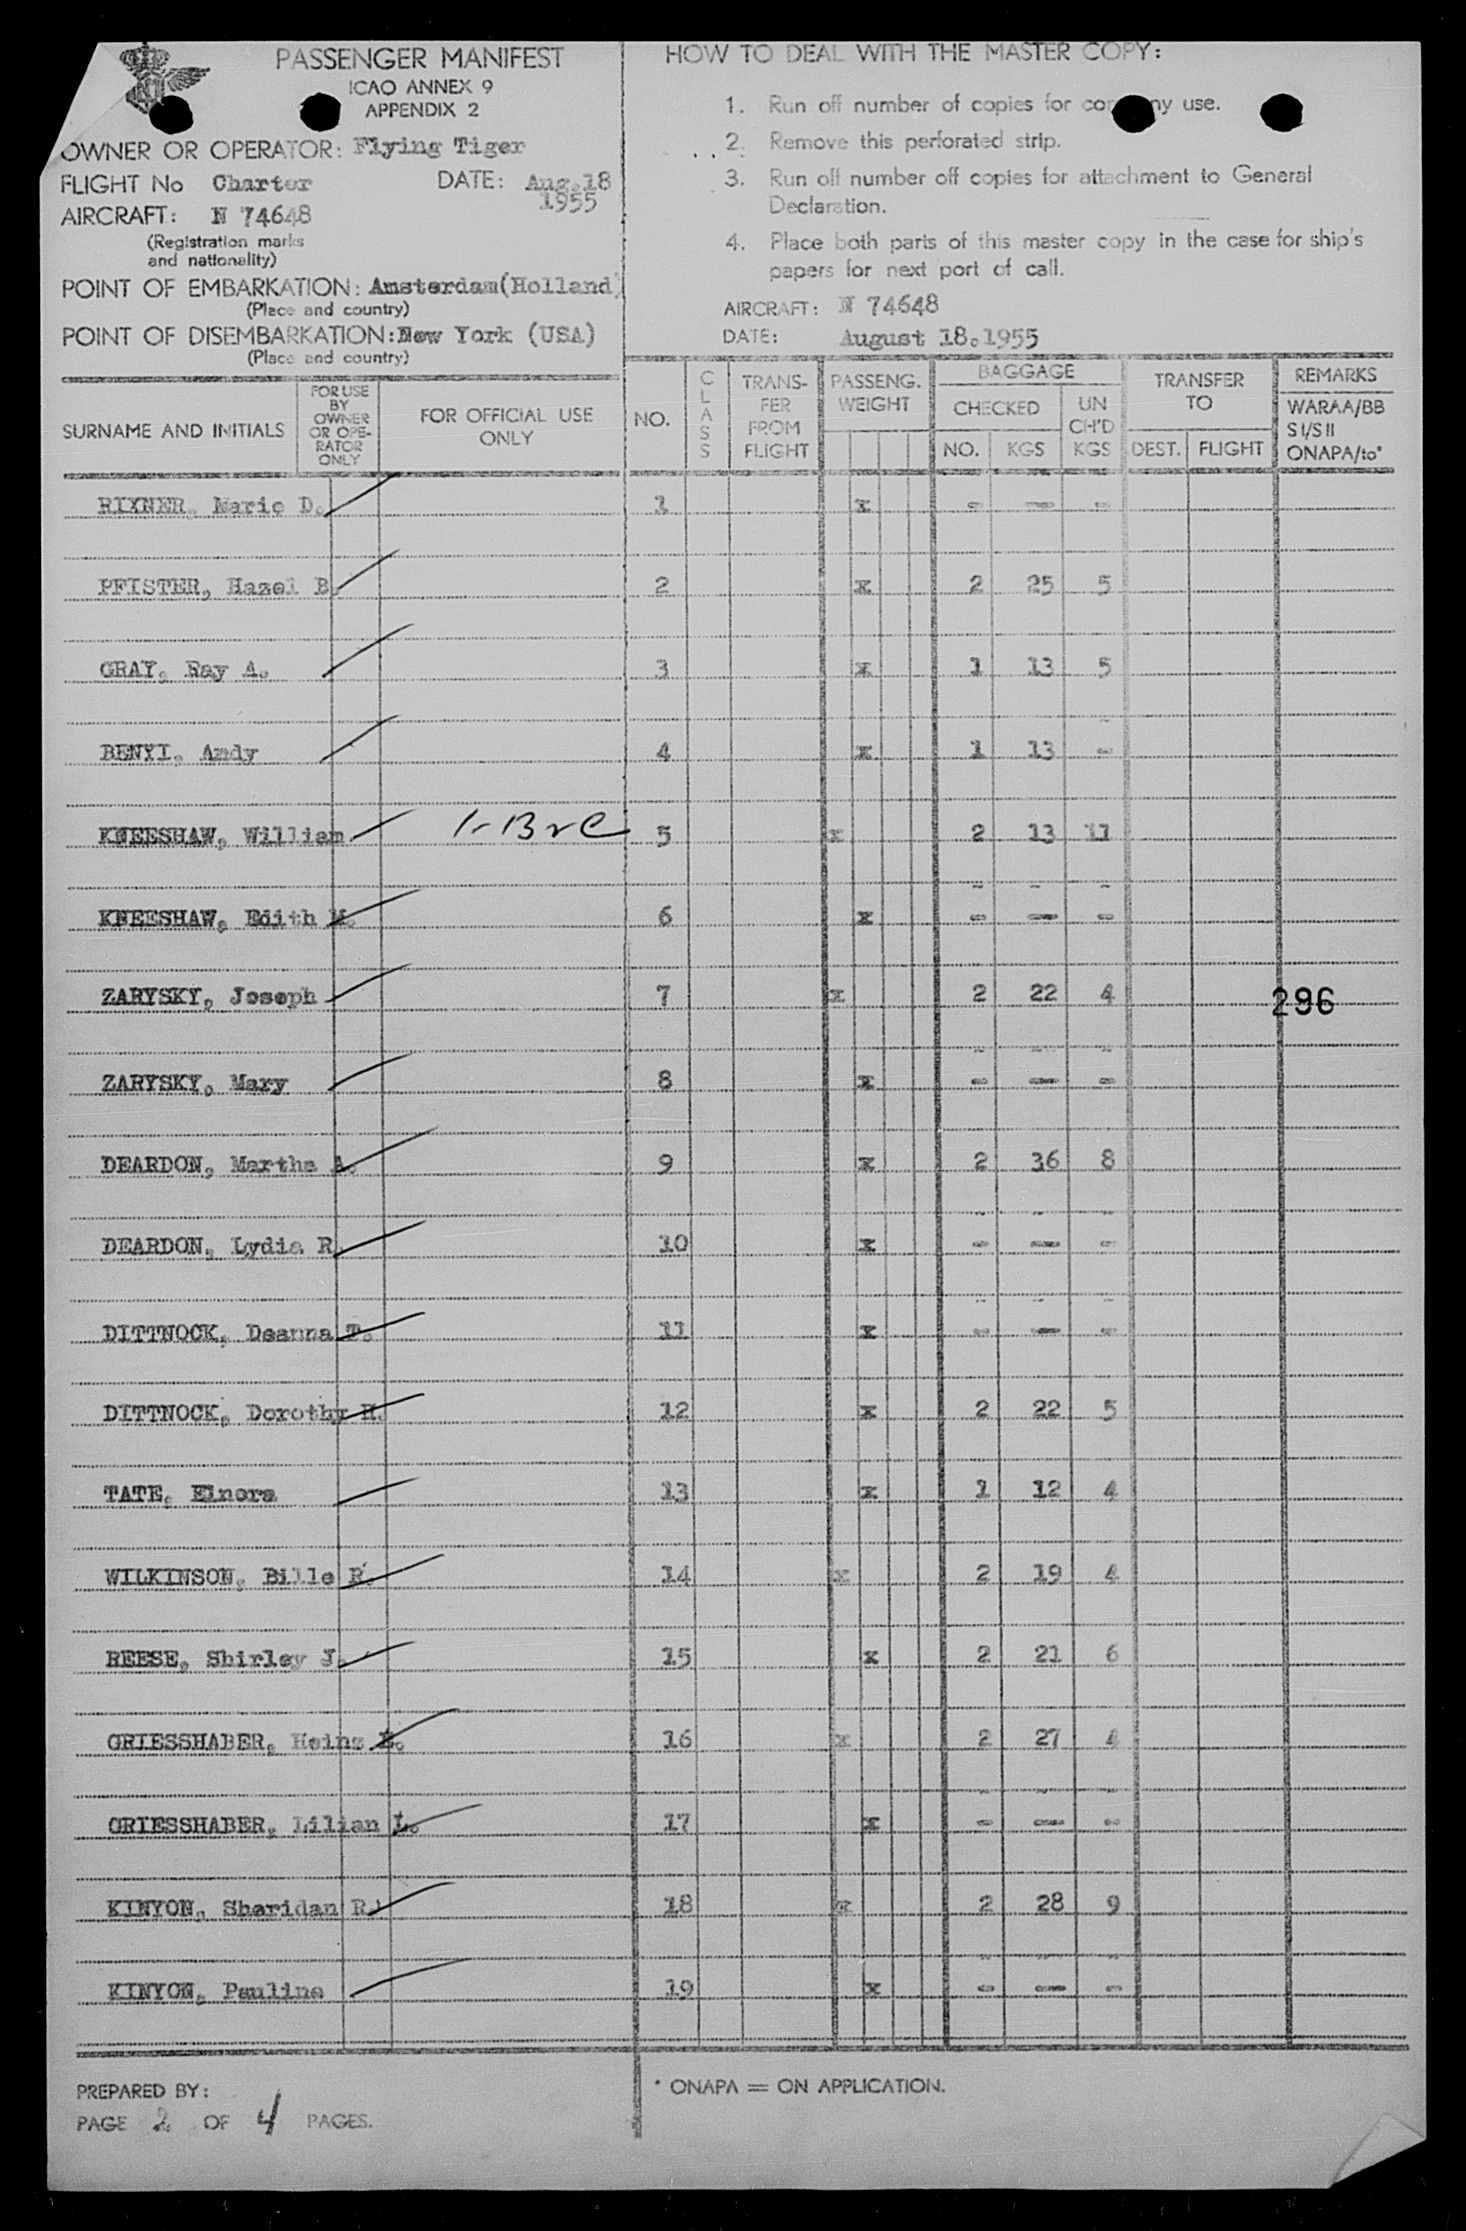 PASSENGER MANIFEST
ICAO ANNEX 9
APPENDIX 2
OWNER OR OPERATOR: Flying Tiger
FLIGHT No Charter DATE: Aug.18
1955
AIRCRAFT: N 74648
(Registration marks
and nationality)
POINT OF EMBARKATION: Amsterdam(Holland)
(Place and country)
POINT OF DISEMBARKATION: New York (USA)
(Place and country)
HOW TO DEAL WITH THE MASTER COPY:
1. Run off number of copies for company use.
2. Remove this perforated strip.
3. Run off number off copies for attachment to General
Declaration.
4. Place both parts of this master copy in the case for ship's
papers for next port of call.
AIRCRAFT: N 74648
DATE: August 18.1955
SURNAME AND INITIALS
FOR USE
BY
OWNER
OR OPE-
RATOR
ONLY
FOR OFFICIAL USE
ONLY
NO.
CLASS
TRANS-
FER
FROM
FLIGHT
PASSENG.
WEIGHT
BAGGAGE
CHECKED
NO. KGS
UN
CH'D
KGS
TRANSFER
TO
DEST. FLIGHT
REMARKS
WARAA/BB
S I/S II
ONAPA/to*
RIXNER, Marie D. 1 x - - -
PFISTER, Hazel B. 2 x 2 25 5
GRAY, Ray A. 3 x 1 13 5
BENYI, Andy 4 x 1 13 -
KNEESHAW, William 5 x 2 13 11
KNEESHAW, Edith M. 6 x - - -
ZARYSKY, Joseph 7 x 2 22 4 296
ZARYSKY, Mary 8 x - - -
DEARDON, Martha A. 9 x 2 36 8
DEARDON, Lydia R 10 x - - -
DITTNOCK, Deanna T. 11 x - - -
DITTNOCK, Dorothy H. 12 x 2 22 5
TATE, Elnora 13 x 1 12 4
WILKINSON, Bille R. 14 x 2 19 4
REESE, Shirley J. 15 x 2 21 6
GRIESSHABER, Heinz E. 16 x 2 27 4
GRIESSHABER, Lilian L. 17 x - - -
KINYON, Sheridan R. 18 x 2 28 9
KINYON, Pauline 19 x - - -
PREPARED BY:
PAGE 2 OF 4 PAGES.
* ONAPA = ON APPLICATION.